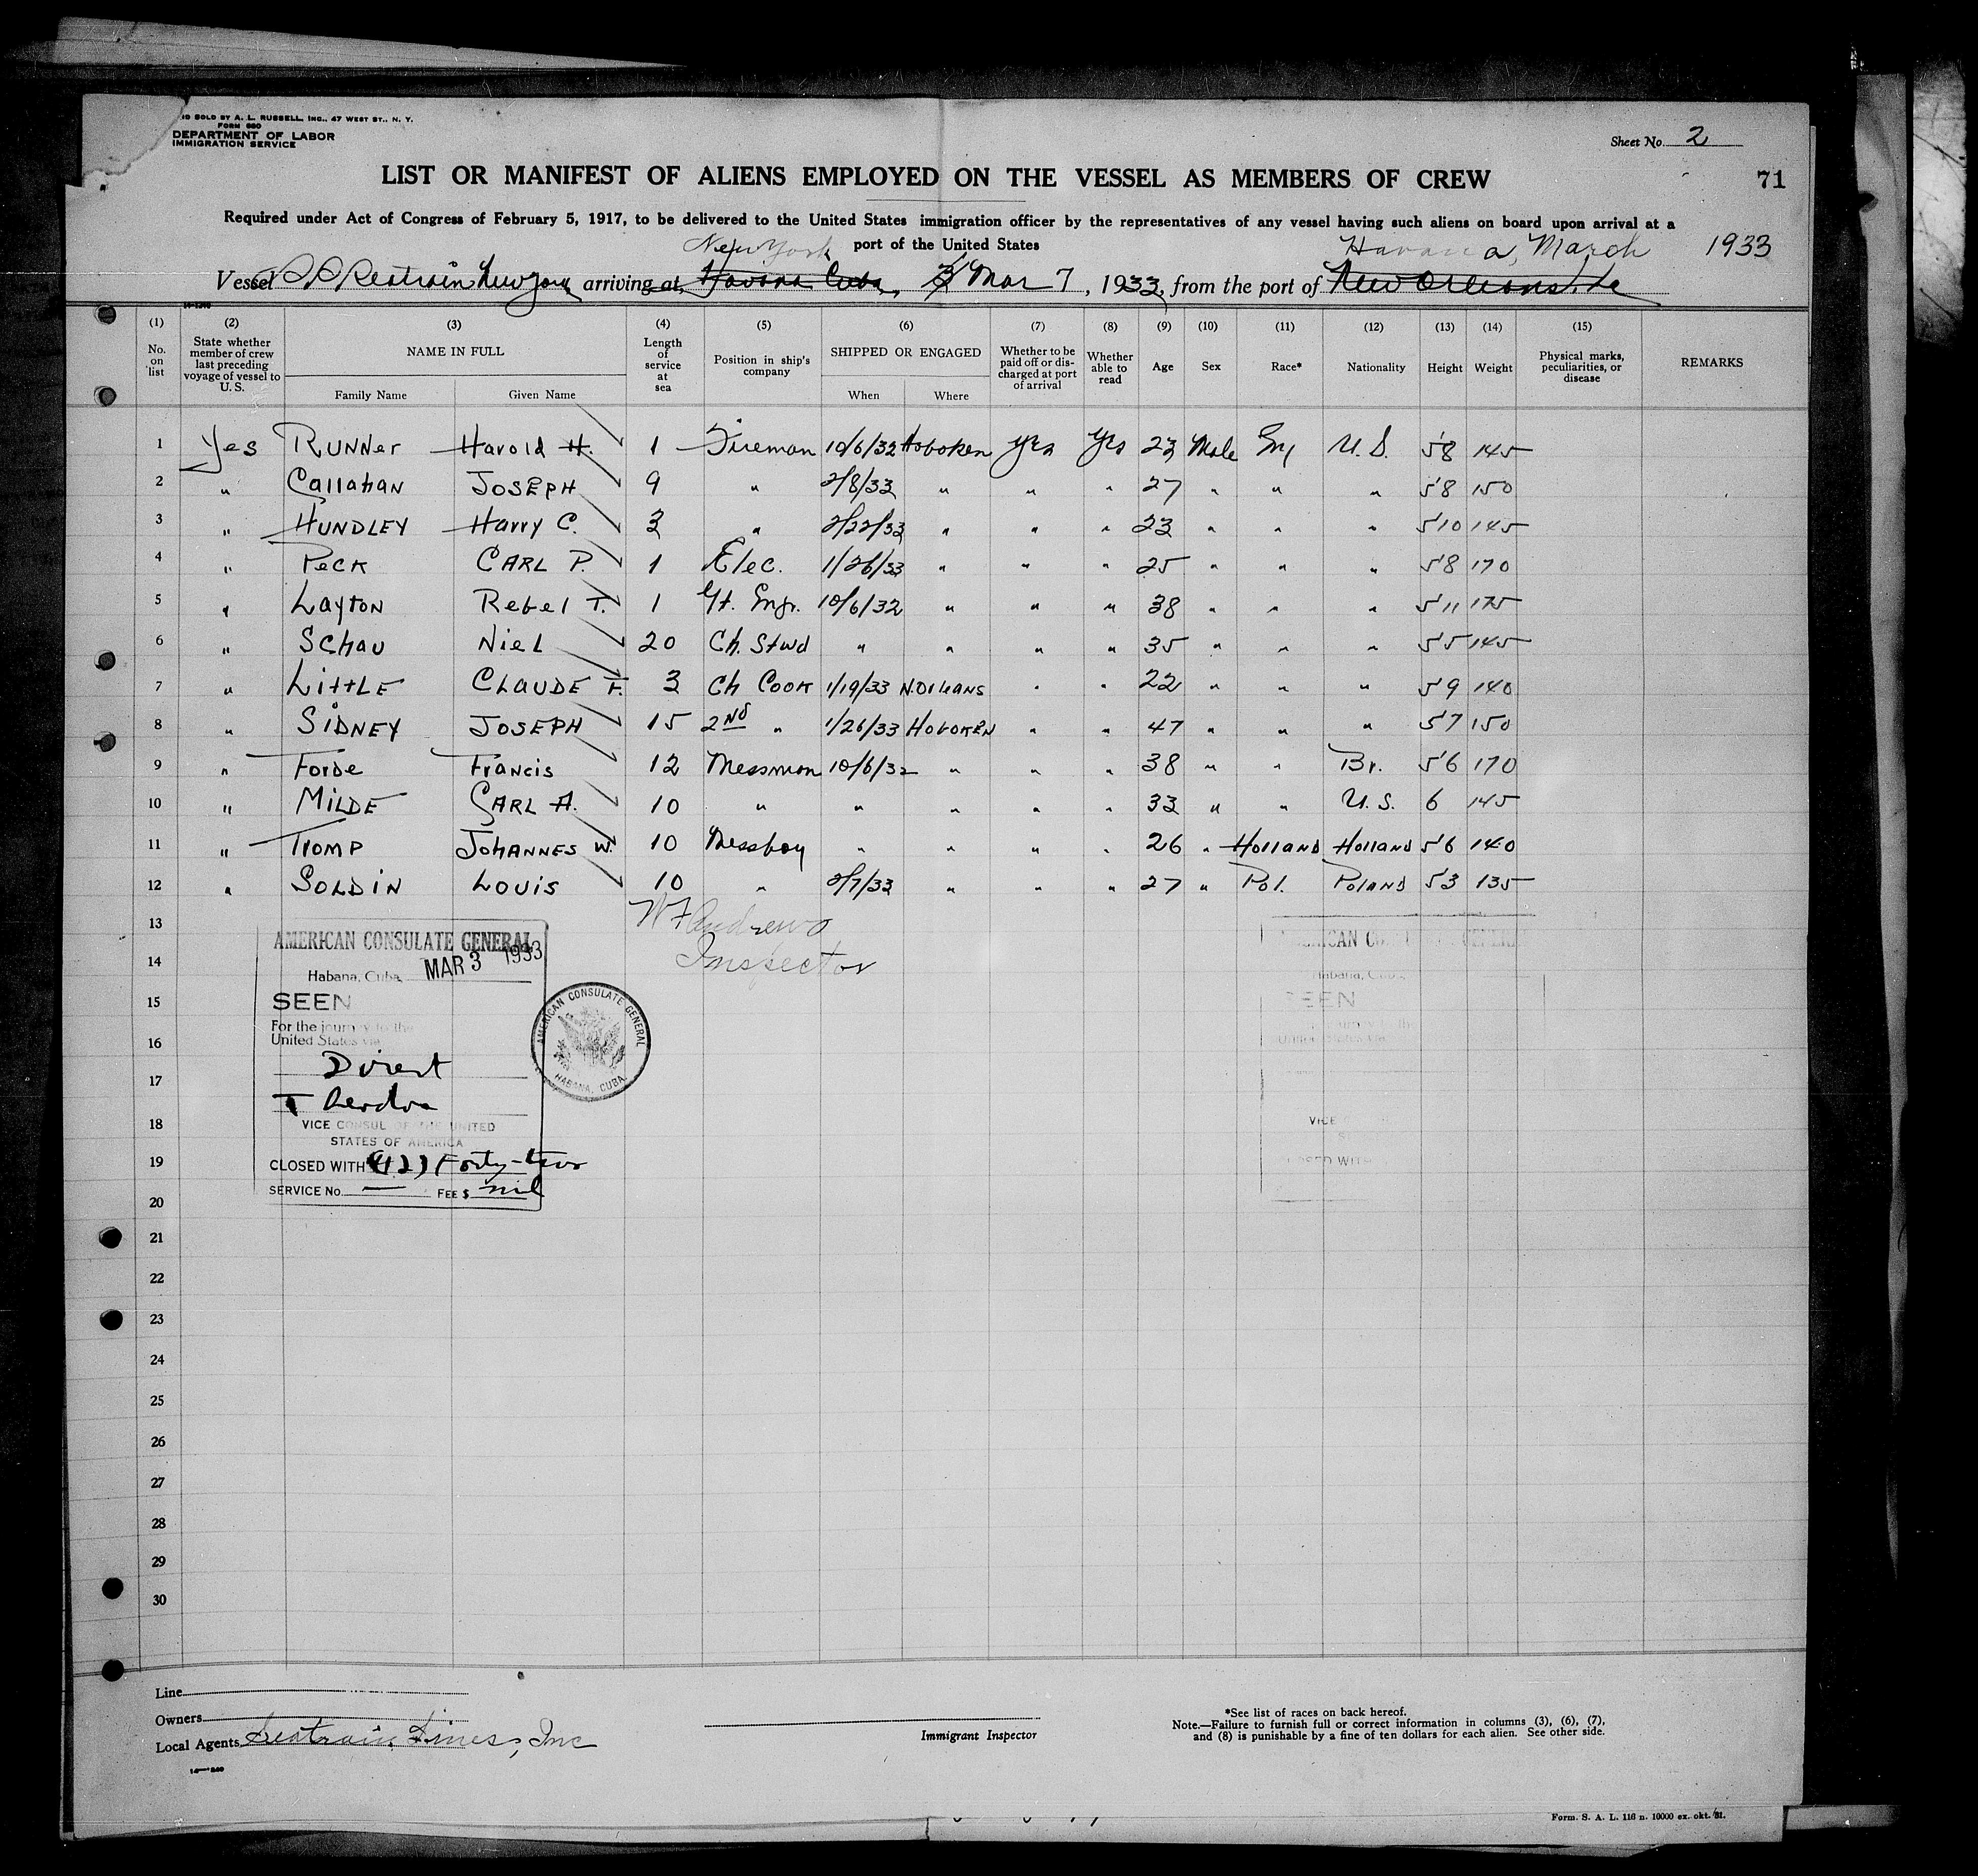 ND SOLD BY A. L. RUSSELL, INC., 47 WEST ST., N. Y.
FORM 680
DEPARTMENT OF LABOR
IMMIGRATION SERVICE
Sheet No. 2
LIST OR MANIFEST OF ALIENS EMPLOYED ON THE VESSEL AS MEMBERS OF CREW
71
Required under Act of Congress of February 5, 1917, to be delivered to the United States immigration officer by the representatives of any vessel having such aliens on board upon arrival at a
port of the United States
New York Havana, March 1933
Vessel SS Seatrain New York arriving at Havana Cuba, Mar 7, 1933, from the port of New Orleans, La
(1) (2) (3) (4) (5) (6) (7) (8) (9) (10) (11) (12) (13) (14) (15)
No. on list State whether member of crew last preceding voyage of vessel to U. S. NAME IN FULL Length of service at sea Position in ship's company SHIPPED OR ENGAGED Whether to be paid off or discharged at port of arrival Whether able to read Age Sex Race* Nationality Height Weight Physical marks, peculiarities, or disease REMARKS
Family Name Given Name When Where
1 Yes RUNNER Harold H. 1 Fireman 10/6/32 Hoboken Yes Yes 23 Male Eng U.S. 5'8 145
2 " Callahan JOSEPH 9 " 2/8/33 " " " 27 " " " 5'8 150
3 " HUNDLEY Harry C. 3 " 2/22/33 " " " 23 " " " 5'10 145
4 " Peck CARL P. 1 Elec. 1/26/33 " " " 25 " " " 5'8 170
5 " Layton Rebel T. 1 Yt. Engr. 10/6/32 " " " 38 " " " 5'11 175
6 " Schau Niel 20 Ch. Stwd " " " " 35 " " " 5'5 145
7 " Little CLAUDE F. 3 Ch Cook 1/19/33 N.Orleans " " 22 " " " 5'9 140
8 " SIDNEY JOSEPH 15 2ND " 1/26/33 HOBOKEN " " 47 " " " 5'7 150
9 " Forde Francis 12 Messman 10/6/32 " " " 38 " " Br. 5'6 170
10 " MILDE CARL A. 10 " " " " " 33 " " U.S. 6 145
11 " Tromp JOHANNES W. 10 Messboy " " " " 26 " Holland Holland 5'6 140
12 " SOLDIN LOUIS 10 " 2/7/33 " " " 27 " Pol. Poland 5'3 135
13
WF Andrews
14
Inspector
15
16
17
18
19
20
21
22
23
24
25
26
27
28
29
30
AMERICAN CONSULATE GENERAL
Habana, Cuba MAR 3 1933
SEEN
For the journey to the
United States via
Direct
VICE CONSUL OF THE UNITED
STATES OF AMERICA
CLOSED WITH (42) Forty-two
SERVICE No. — FEE $ nil
AMERICAN CONSULATE GENERAL
HABANA, CUBA.
AMERICAN CONSULATE GENERAL
Habana, Cuba
SEEN
Line
Owners
Local Agents Seatrain Lines, Inc
Immigrant Inspector
*See list of races on back hereof.
Note.—Failure to furnish full or correct information in columns (3), (6), (7),
and (8) is punishable by a fine of ten dollars for each alien. See other side.
Form. S. A. L. 116 n. 10000 ex. okt. 31.